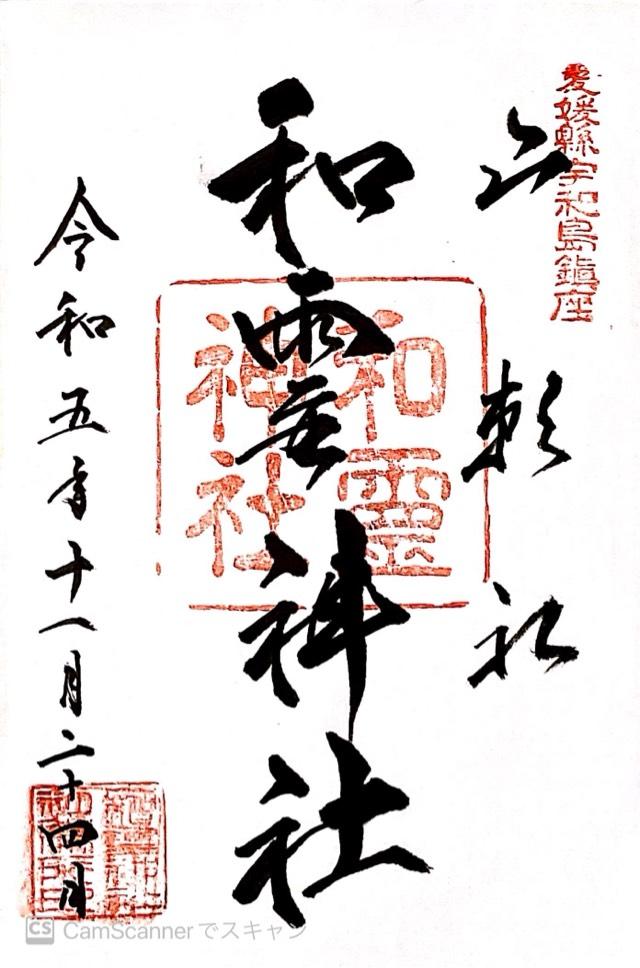 愛媛縣宇和島鎮座
和霊神社
和靈神社
令和五年十一月二十四日
CS CamScannerでスキャン